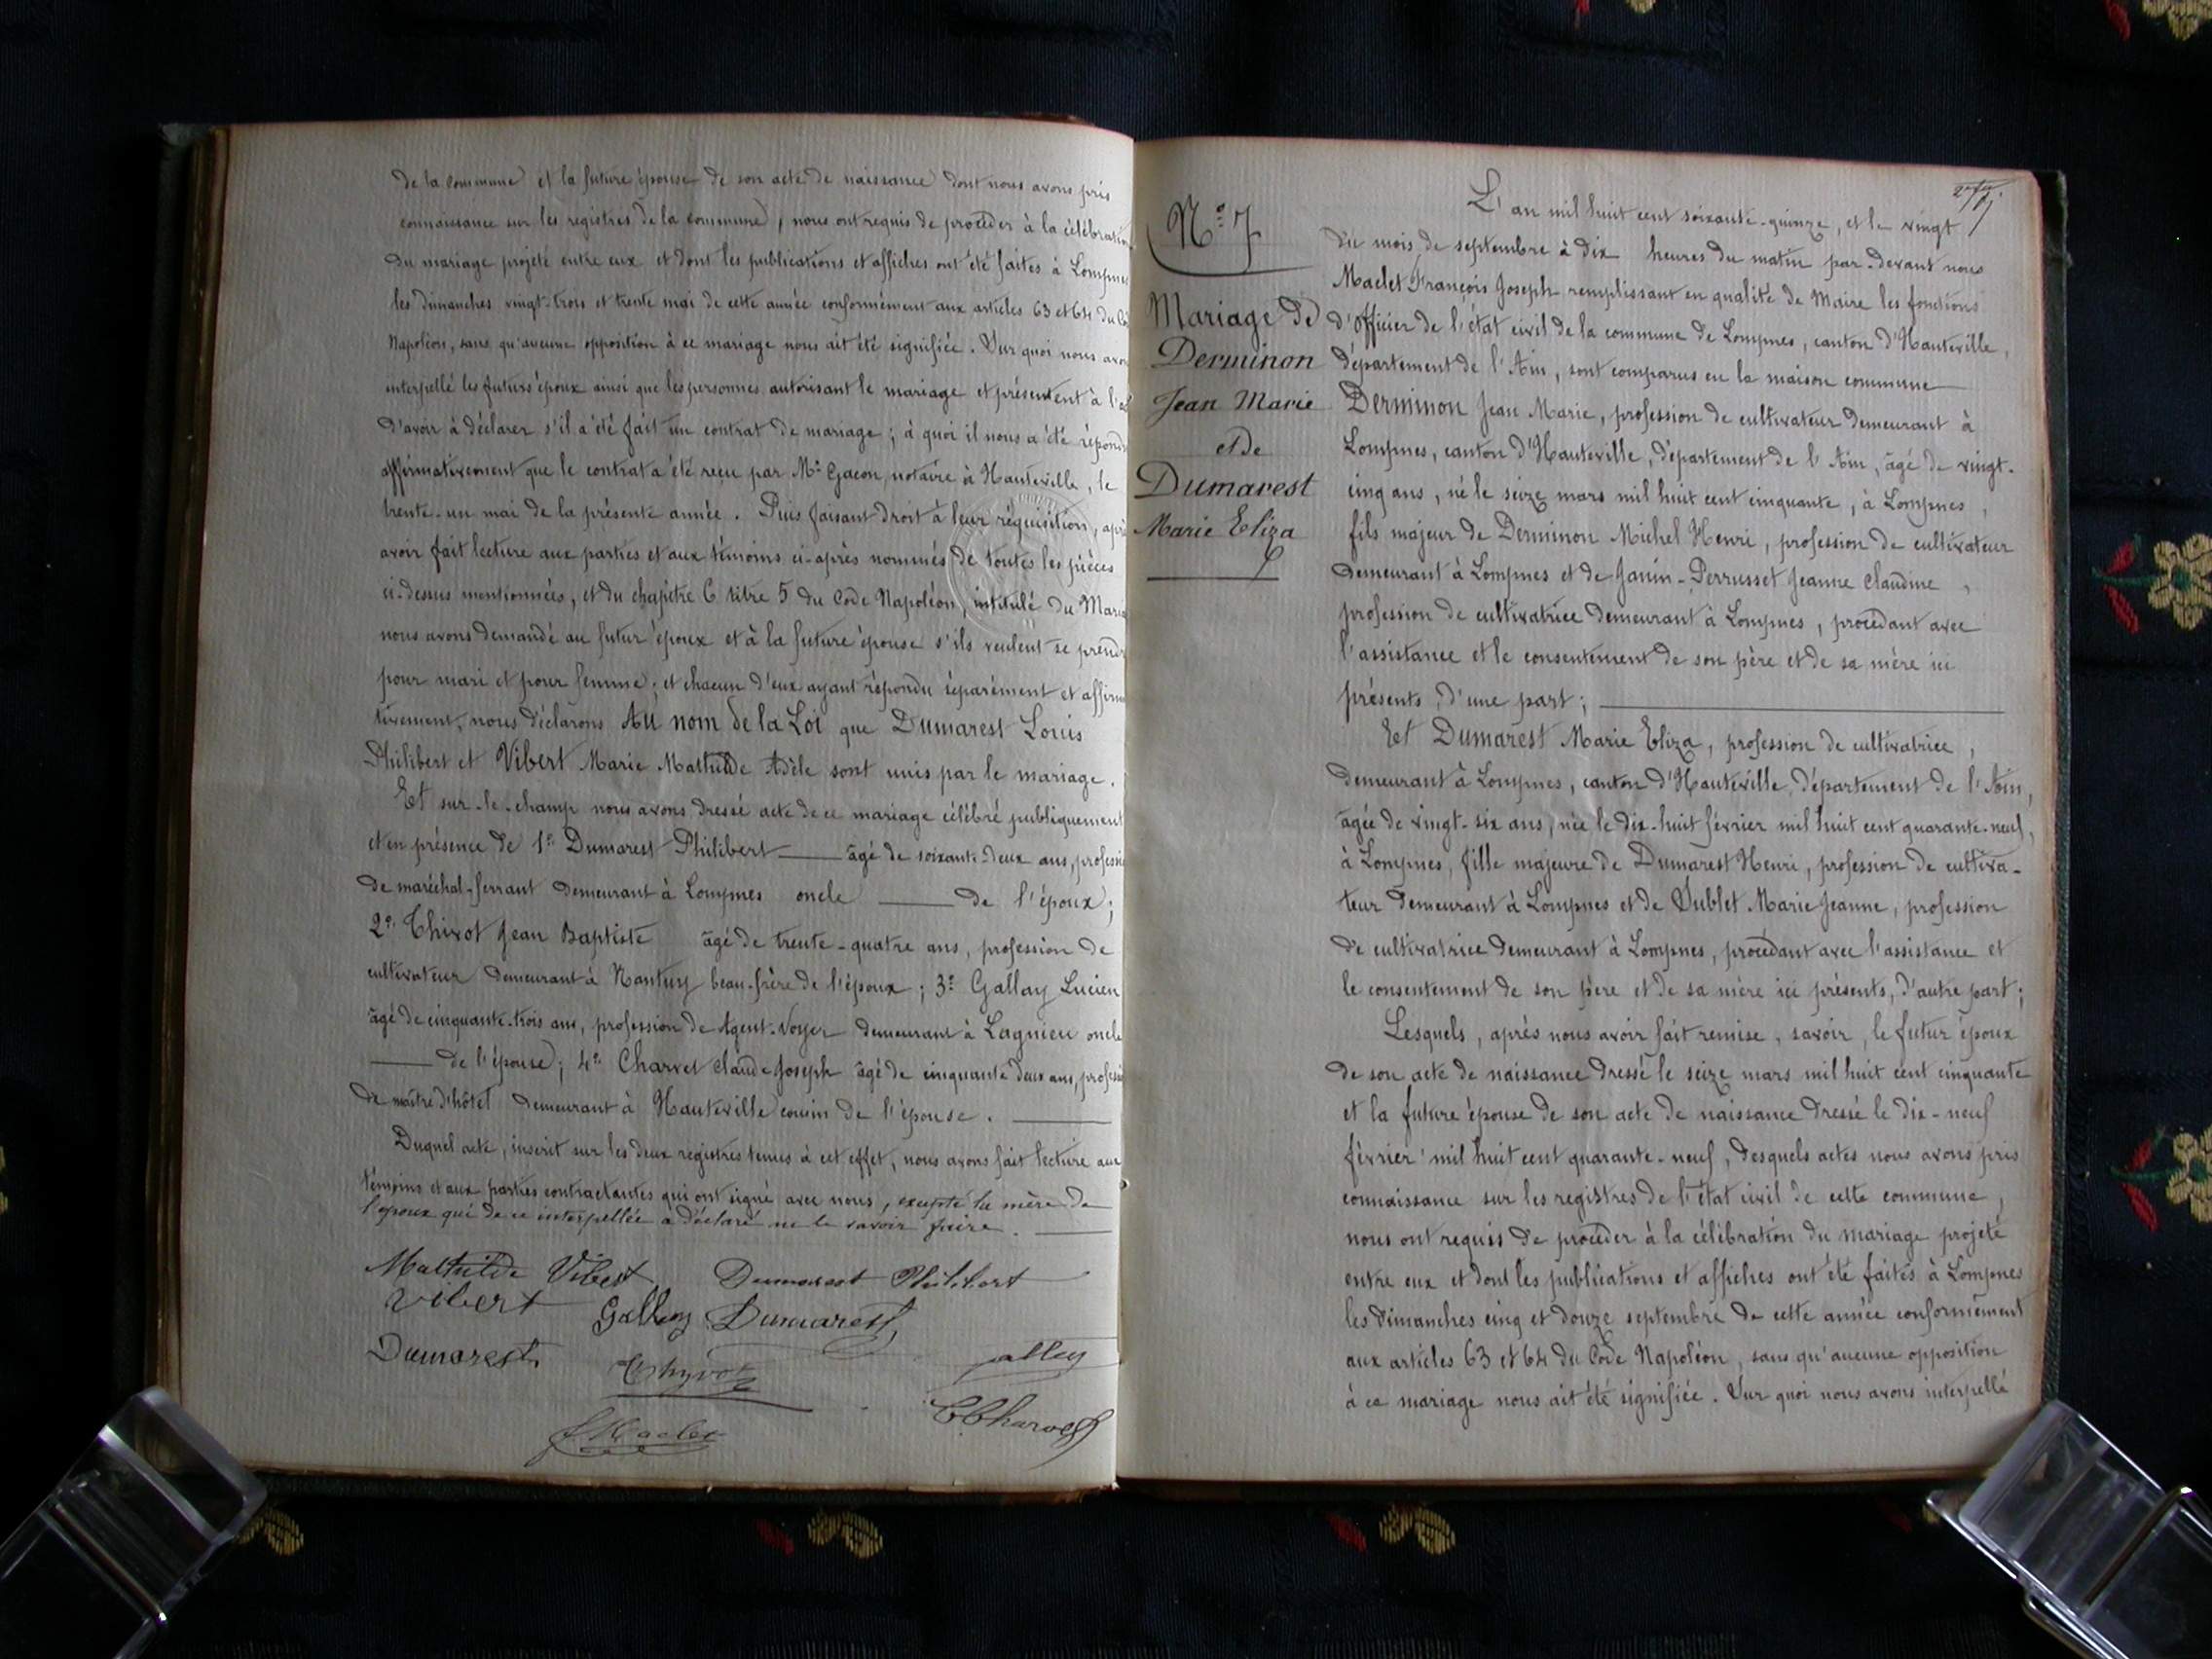 de la commune et la future épouse de son acte de naissance dont nous avons pris
connaissance sur les registres de la commune, nous ont requis de procéder à la célébration
du mariage projeté entre eux et dont les publications et affiches ont été faites à Lompnes
les dimanches vingt-trois et trente mai de cette année conformément aux articles 63 et 64 du
Napoléon, sans qu'aucune opposition à ce mariage nous ait été signifiée. Sur quoi nous avons
interpellé les futurs époux ainsi que les personnes autorisant le mariage et présentent à
d'avoir à déclarer s'il a été fait un contrat de mariage; à quoi il nous a été répondu
affirmativement que le contrat a été reçu par Me Gacon, notaire à Hauteville, le
trente-un mai de la présente année. Puis faisant droit à leur réquisition, après
avoir fait lecture aux parties et aux témoins ci-après nommés de toutes les pièces
ci-dessus mentionnées, et du chapitre 6 titre 5 du Code Napoléon, intitulé du Maria
nous avons demandé au futur époux et à la future épouse s'ils veulent se prendre
pour mari et pour femme; et chacun d'eux ayant répondu séparément et affirma
tivement, nous déclarons Au nom de la Loi que Dumarest Louis
Philibert et Vibert Marie Mathilde Adèle sont unis par le mariage.
Et sur-le-champ nous avons dressé acte de ce mariage célébré publiquement
et en présence de 1° Dumarest Philibert — âgé de soixante-deux ans, professi
de maréchal-ferrant demeurant à Lompnes oncle — de l'époux;
2° Thivot Jean Baptiste âgé de trente-quatre ans, profession de
cultivateur demeurant à Nantuy beau-frère de l'époux; 3° Gallay Lucien
âgé de cinquante-trois ans, profession de Agent-Voyer demeurant à Lagnieu oncle
— de l'épouse; 4° Charvet Claude Joseph âgé de cinquante deux ans, professi
de maître d'hôtel demeurant à Hauteville cousin de l'épouse. —
Duquel acte, inscrit sur les deux registres tenus à cet effet, nous avons fait lecture aux
témoins et aux parties contractantes qui ont signé avec nous, excepté la mère de
l'époux qui de ce interpellée a déclaré ne le savoir faire. —
Mathilde Vibert Dumarest Philibert
Vibert Gallay Dumarest
Dumarest Thyvot
F Maclet C Charvet
27
N° 7
Mariage de
Derminon
Jean Marie
et de
Dumarest
Marie Eliza
L'an mil huit cent soixante-quinze, et le vingt
du mois de septembre à dix heures du matin par-devant nous
Maclet François Joseph remplissant en qualité de Maire les fonctions
d'officier de l'état civil de la commune de Lompnes, canton d'Hauteville,
département de l'Ain, sont comparus en la maison commune
Derminon Jean Marie, profession de cultivateur demeurant à
Lompnes, canton d'Hauteville, département de l'Ain, âgé de vingt-
cinq ans, né le seize mars mil huit cent cinquante, à Lompnes,
fils majeur de Derminon Michel Henri, profession de cultivateur
demeurant à Lompnes et de Janin-Perrusset Jeanne Claudine,
profession de cultivatrice demeurant à Lompnes, procédant avec
l'assistance et le consentement de son père et de sa mère ici
présents, d'une part; —
Et Dumarest Marie Eliza, profession de cultivatrice,
demeurant à Lompnes, canton d'Hauteville, département de l'Ain,
âgée de vingt-six ans, née le dix-huit février mil huit cent quarante-neuf,
à Lompnes, fille majeure de Dumarest Henri, profession de cultiva-
teur demeurant à Lompnes et de Vublet Marie Jeanne, profession
de cultivatrice demeurant à Lompnes, procédant avec l'assistance et
le consentement de son père et de sa mère ici présents, d'autre part;
Lesquels, après nous avoir fait remise, savoir, le futur époux
de son acte de naissance dressé le seize mars mil huit cent cinquante
et la future épouse de son acte de naissance dressé le dix-neuf
février mil huit cent quarante-neuf, desquels actes nous avons pris
connaissance sur les registres de l'état civil de cette commune,
nous ont requis de procéder à la célébration du mariage projeté
entre eux et dont les publications et affiches ont été faites à Lompnes
les dimanches cinq et douze septembre de cette année conformément
aux articles 63 et 64 du Code Napoléon, sans qu'aucune opposition
à ce mariage nous ait été signifiée. Sur quoi nous avons interpellé